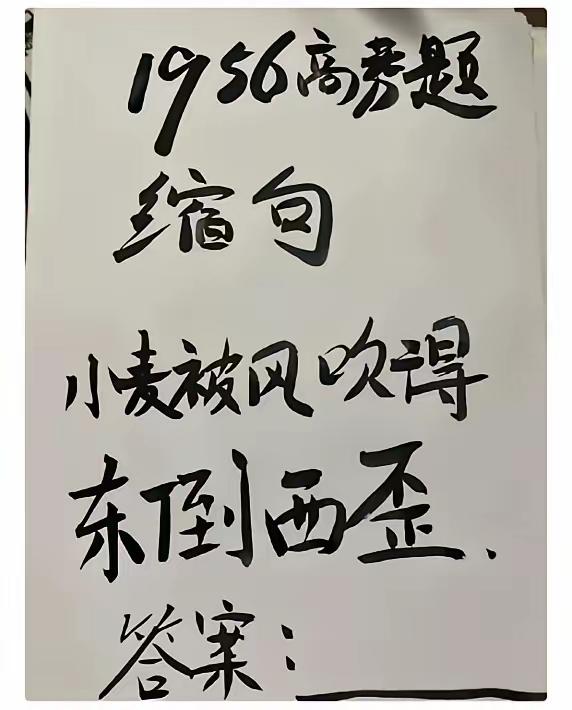 1956高考题
缩句
小麦被风吹得
东倒西歪、
答案：